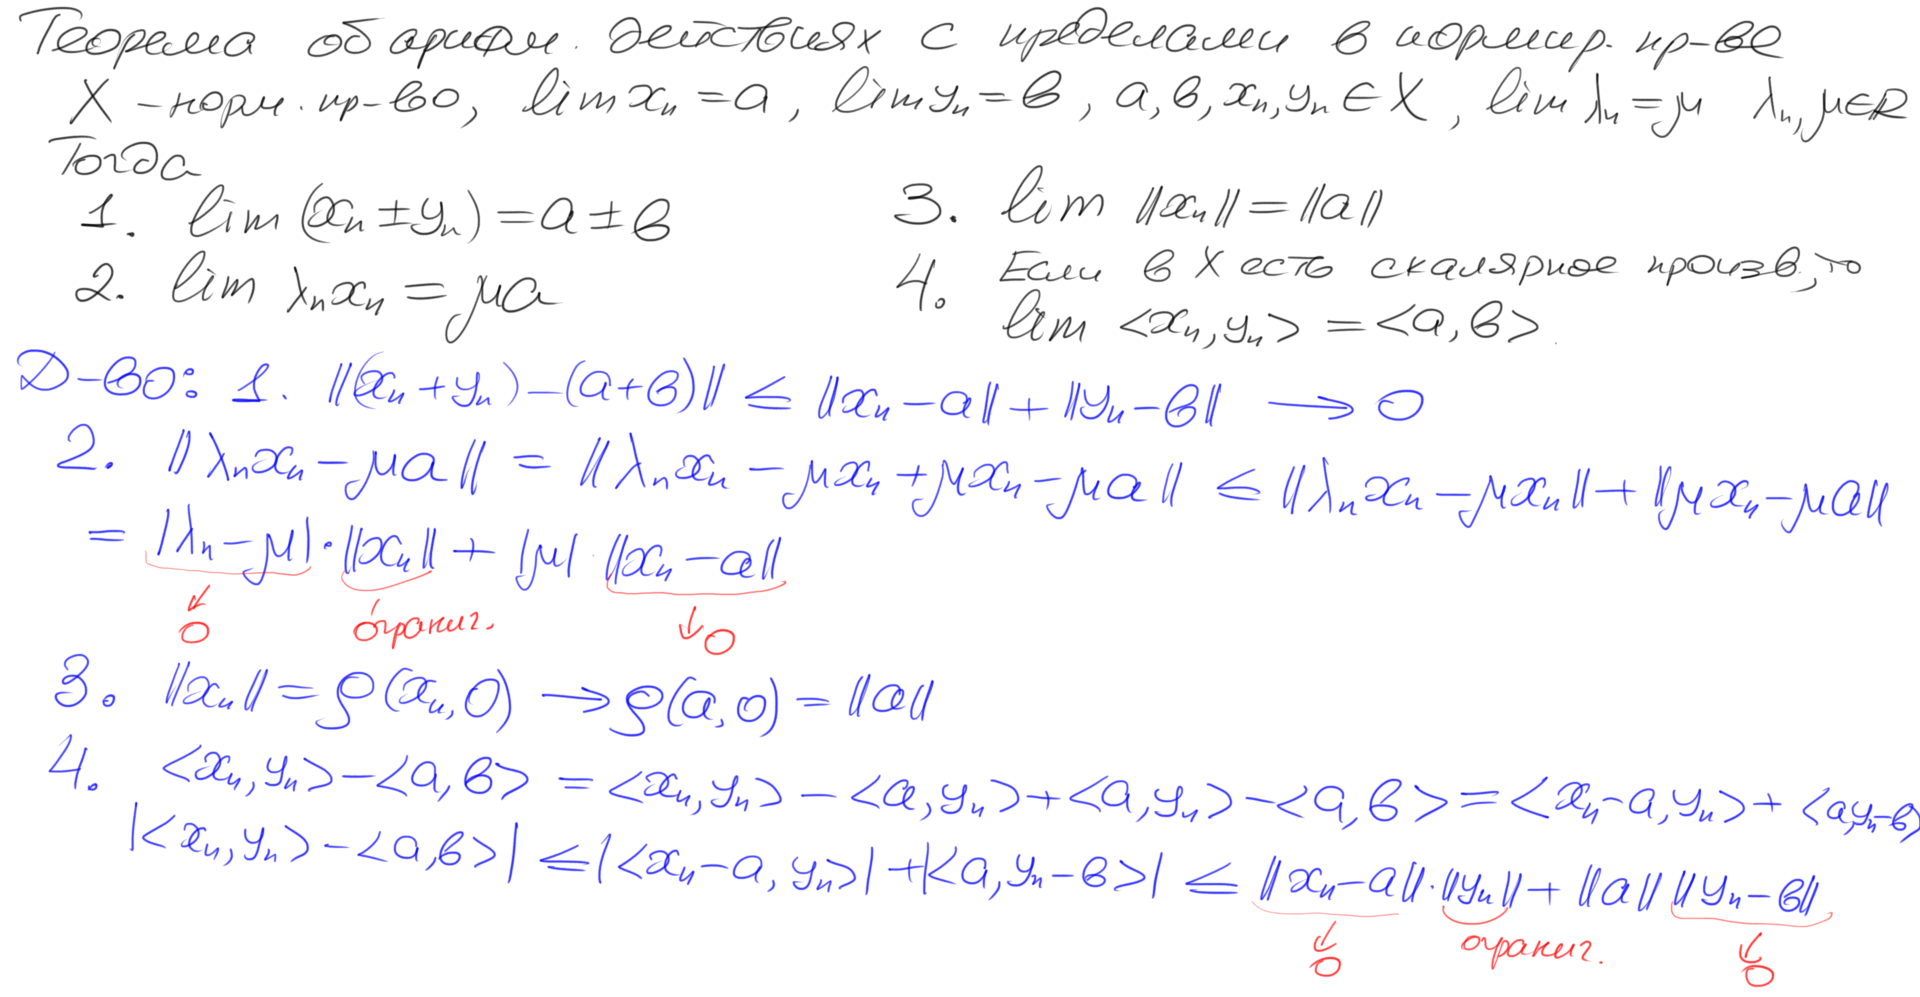 Теорема об арифм. действиях с пределами в нормир. пр-ве
X – норм. пр-во, lim xₙ = a, lim yₙ = b, a, b, xₙ, yₙ ∈ X, lim λₙ = μ λₙ, μ ∈ R
Тогда
1. lim (xₙ ± yₙ) = a ± b
2. lim λₙxₙ = μa
3. lim ‖xₙ‖ = ‖a‖
4. Если в X есть скалярное произв., то
lim <xₙ, yₙ> = <a, b>
Д-во: 1. ‖(xₙ + yₙ) – (a + b)‖ ≤ ‖xₙ – a‖ + ‖yₙ – b‖ → 0
2. ‖λₙxₙ – μa‖ = ‖λₙxₙ – μxₙ + μxₙ – μa‖ ≤ ‖λₙxₙ – μxₙ‖ + ‖μxₙ – μa‖
= |λₙ – μ| · ‖xₙ‖ + |μ| · ‖xₙ – a‖
↓ 0 огранич. ↓ 0
3. ‖xₙ‖ = ρ(xₙ, 0) → ρ(a, 0) = ‖a‖
4. <xₙ, yₙ> – <a, b> = <xₙ, yₙ> – <a, yₙ> + <a, yₙ> – <a, b> = <xₙ – a, yₙ> + <a, yₙ – b>
|<xₙ, yₙ> – <a, b>| ≤ |<xₙ – a, yₙ>| + |<a, yₙ – b>| ≤ ‖xₙ – a‖ · ‖yₙ‖ + ‖a‖ ‖yₙ – b‖
↓ 0 огранич. ↓ 0